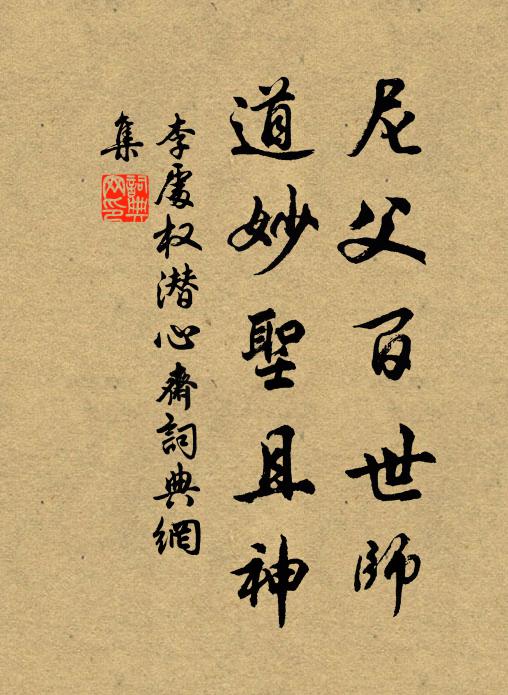 尼父百世師
道妙聖且神
李處权潜心齋詞典網
集
詞典网印